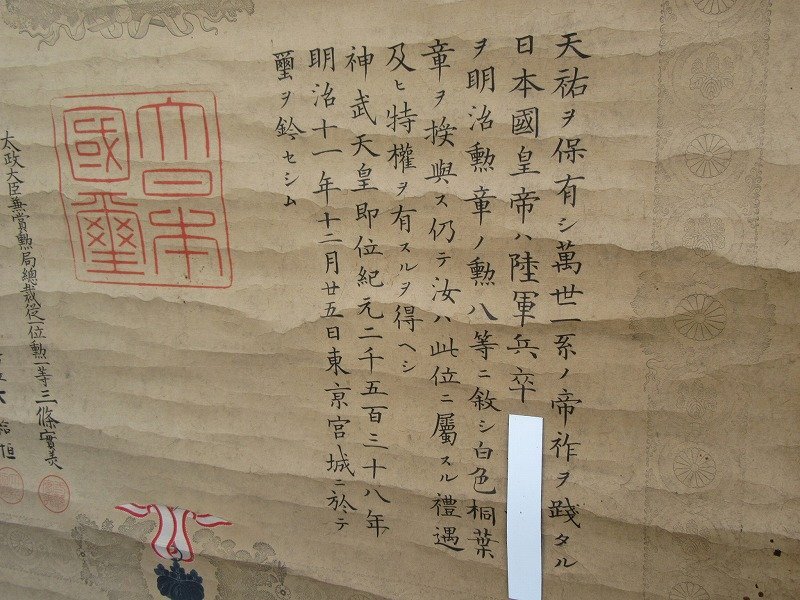 天祐ヲ保有シ萬世一系ノ帝祚ヲ踐タル
日本國皇帝ハ陸軍兵卒
ヲ明治勲章ノ勲八等ニ敘シ白色桐葉
章ヲ授與ス仍テ汝ハ此位ニ屬スル禮遇
及ヒ特權ヲ有スルヲ得ヘシ
神武天皇即位紀元二千五百三十八年
明治十一年十二月廿五日東京宮城ニ於テ
璽ヲ鈐セシム
大日本
國璽
太政大臣兼賞勲局總裁從一位勲一等三條實美